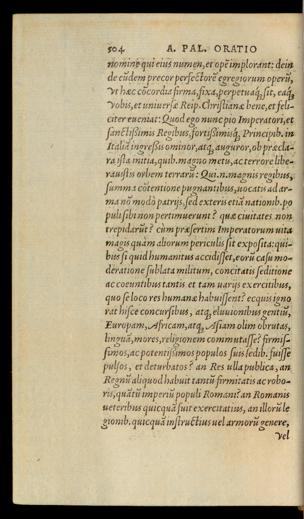 504. A. PAL. ORATIO
nomine qui eius numen, et opē implorant: dein
de eūdem precor perfectorē egregiorum operū,
Vt hæc cōcordia firma, fixa, perpetuaq́; sit, eaq́;
Vobis, et uniuersæ Reip. Christianæ bene, et feli-
citer eueniat: Quod ego nunc pio Imperatori, et
sanctissimis Regibus, fortissimisq́; Principib. in
Italiā ingressis ominor, atq́; auguror, ob præcla-
ra ista initia, quib. magno metu, ac terrore libe-
rauistis orbem terrarū: Qui. n. magnis regibus,
summa cōtentione pugnantibus, uocatis ad ar-
ma nō modò patrijs, sed exteris etiā nationib. po
pulis ibi non pertimuerunt? quæ ciuitates non
trepidarūt? cùm præsertim Imperatorum uita
magis quàm aborum periculis sit exposita: qui-
bus si quid humanitus accidisset, eorū casu mo-
deratione sublata militum, concitatis seditione
ac coeuntibus tantis et tam uarijs exercitibus,
quo se loco res humanæ habuissent? ecquis igno
rat hisce concursibus, atq́; eluuionibus gentiū,
Europam, Africam, atq́; Asiam olim obrutas,
linguā, mores, religionem commutasse? firmis-
simos, ac potentissimos populos suis sedib. fuisse
pulsos, et deturbatos? an Res ulla publica, an
Regnū aliquod habuit tantū firmitatis ac robo-
ris, quātū imperiū populi Romani? an Romanis
ueteribus quicquā fuit exercitatius, an illorū le
gionib. quicquā instructius uel armorū genere,
vel